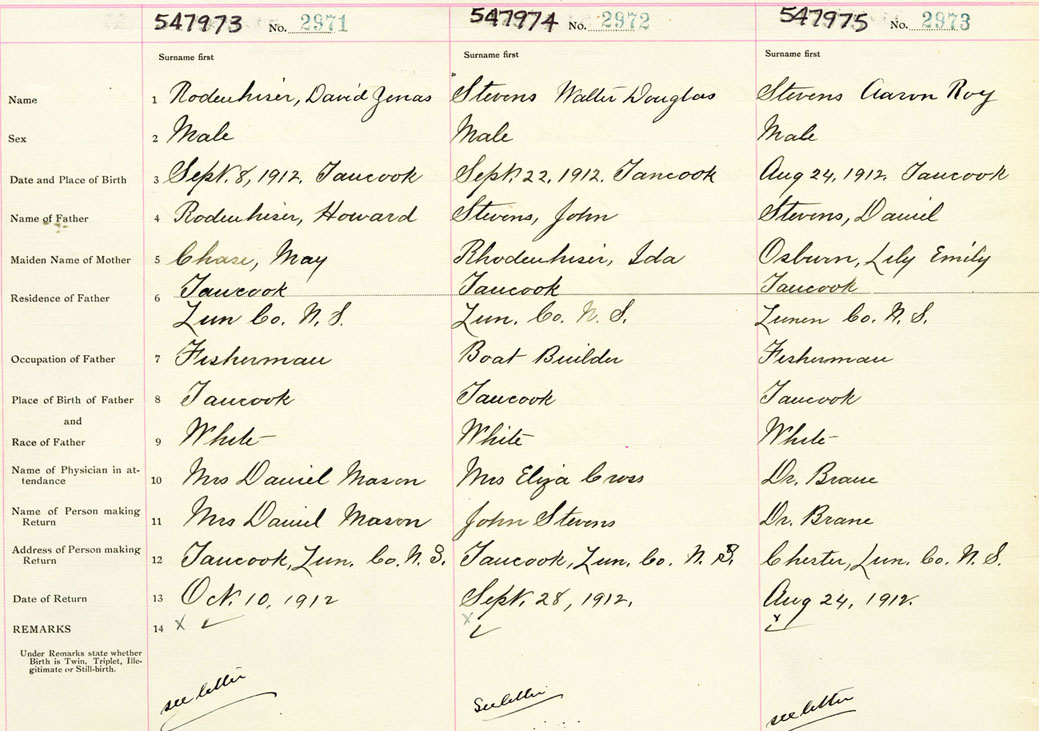 547973 No. 2971 547974 No. 2972 547975 No. 2973
Surname first Surname first Surname first
Name 1 Rodenhiser, David Jenas Stevens Walter Douglas Stevens Aaron Roy
Sex 2 Male Male Male
Date and Place of Birth 3 Sept. 8, 1912. Tancook Sept. 22, 1912. Tancook Aug 24, 1912. Tancook
Name of Father 4 Rodenhiser, Howard Stevens, John Stevens, Daniel
Maiden Name of Mother 5 Chase, May Rhodenhiser, Ida Osburn, Lily Emily
Residence of Father 6 Tancook Tancook Tancook
Lun Co. N. S. Lun. Co. N. S. Lunen Co. N. S.
Occupation of Father 7 Fisherman Boat Builder Fisherman
Place of Birth of Father 8 Tancook Tancook Tancook
and
Race of Father 9 White White White
Name of Physician in at-
tendance 10 Mrs Daniel Mason Mrs Eliza Cross Dr. Brane
Name of Person making
Return 11 Mrs Daniel Mason John Stevens Dr. Brane
Address of Person making
Return 12 Tancook, Lun. Co. N. S. Tancook, Lun. Co. N. S. Chester, Lun. Co. N. S.
Date of Return 13 Oct. 10, 1912 Sept. 28, 1912. Aug 24, 1912.
REMARKS 14 x x x
Under Remarks state whether
Birth is Twin, Triplet, Ille-
gitimate or Still-birth.
see letter See letter see letter